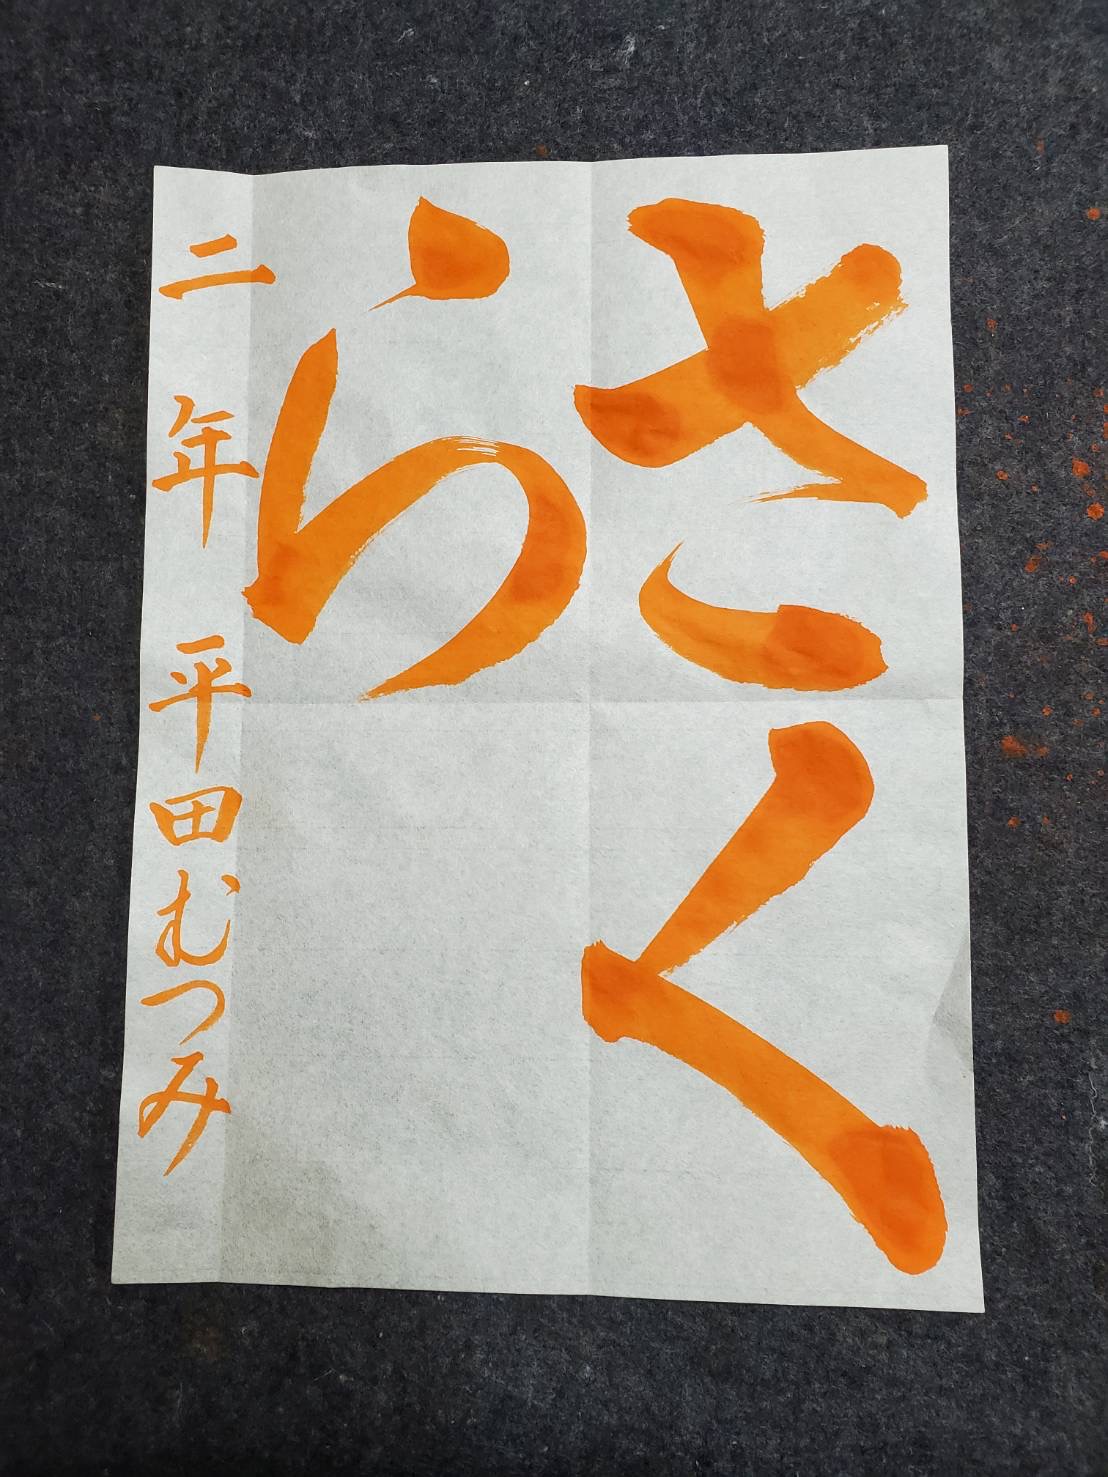 さく
ら
二年 平田むつみ